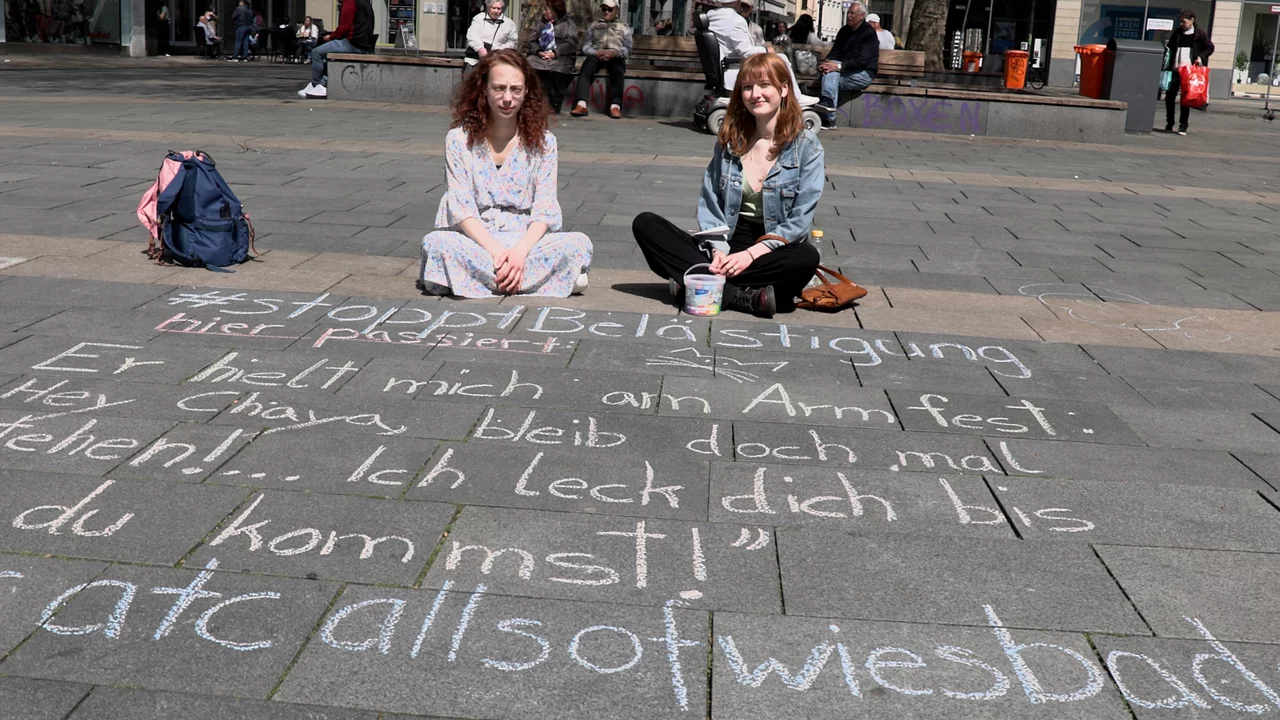 #stopptBelästigung
hier passiert:
Er hielt mich am Arm fest:
Hey Chaya, bleib doch mal
tehen!!... Ich leck dich bis
du kommst!"
catcallsofwiesbad
BOXEN